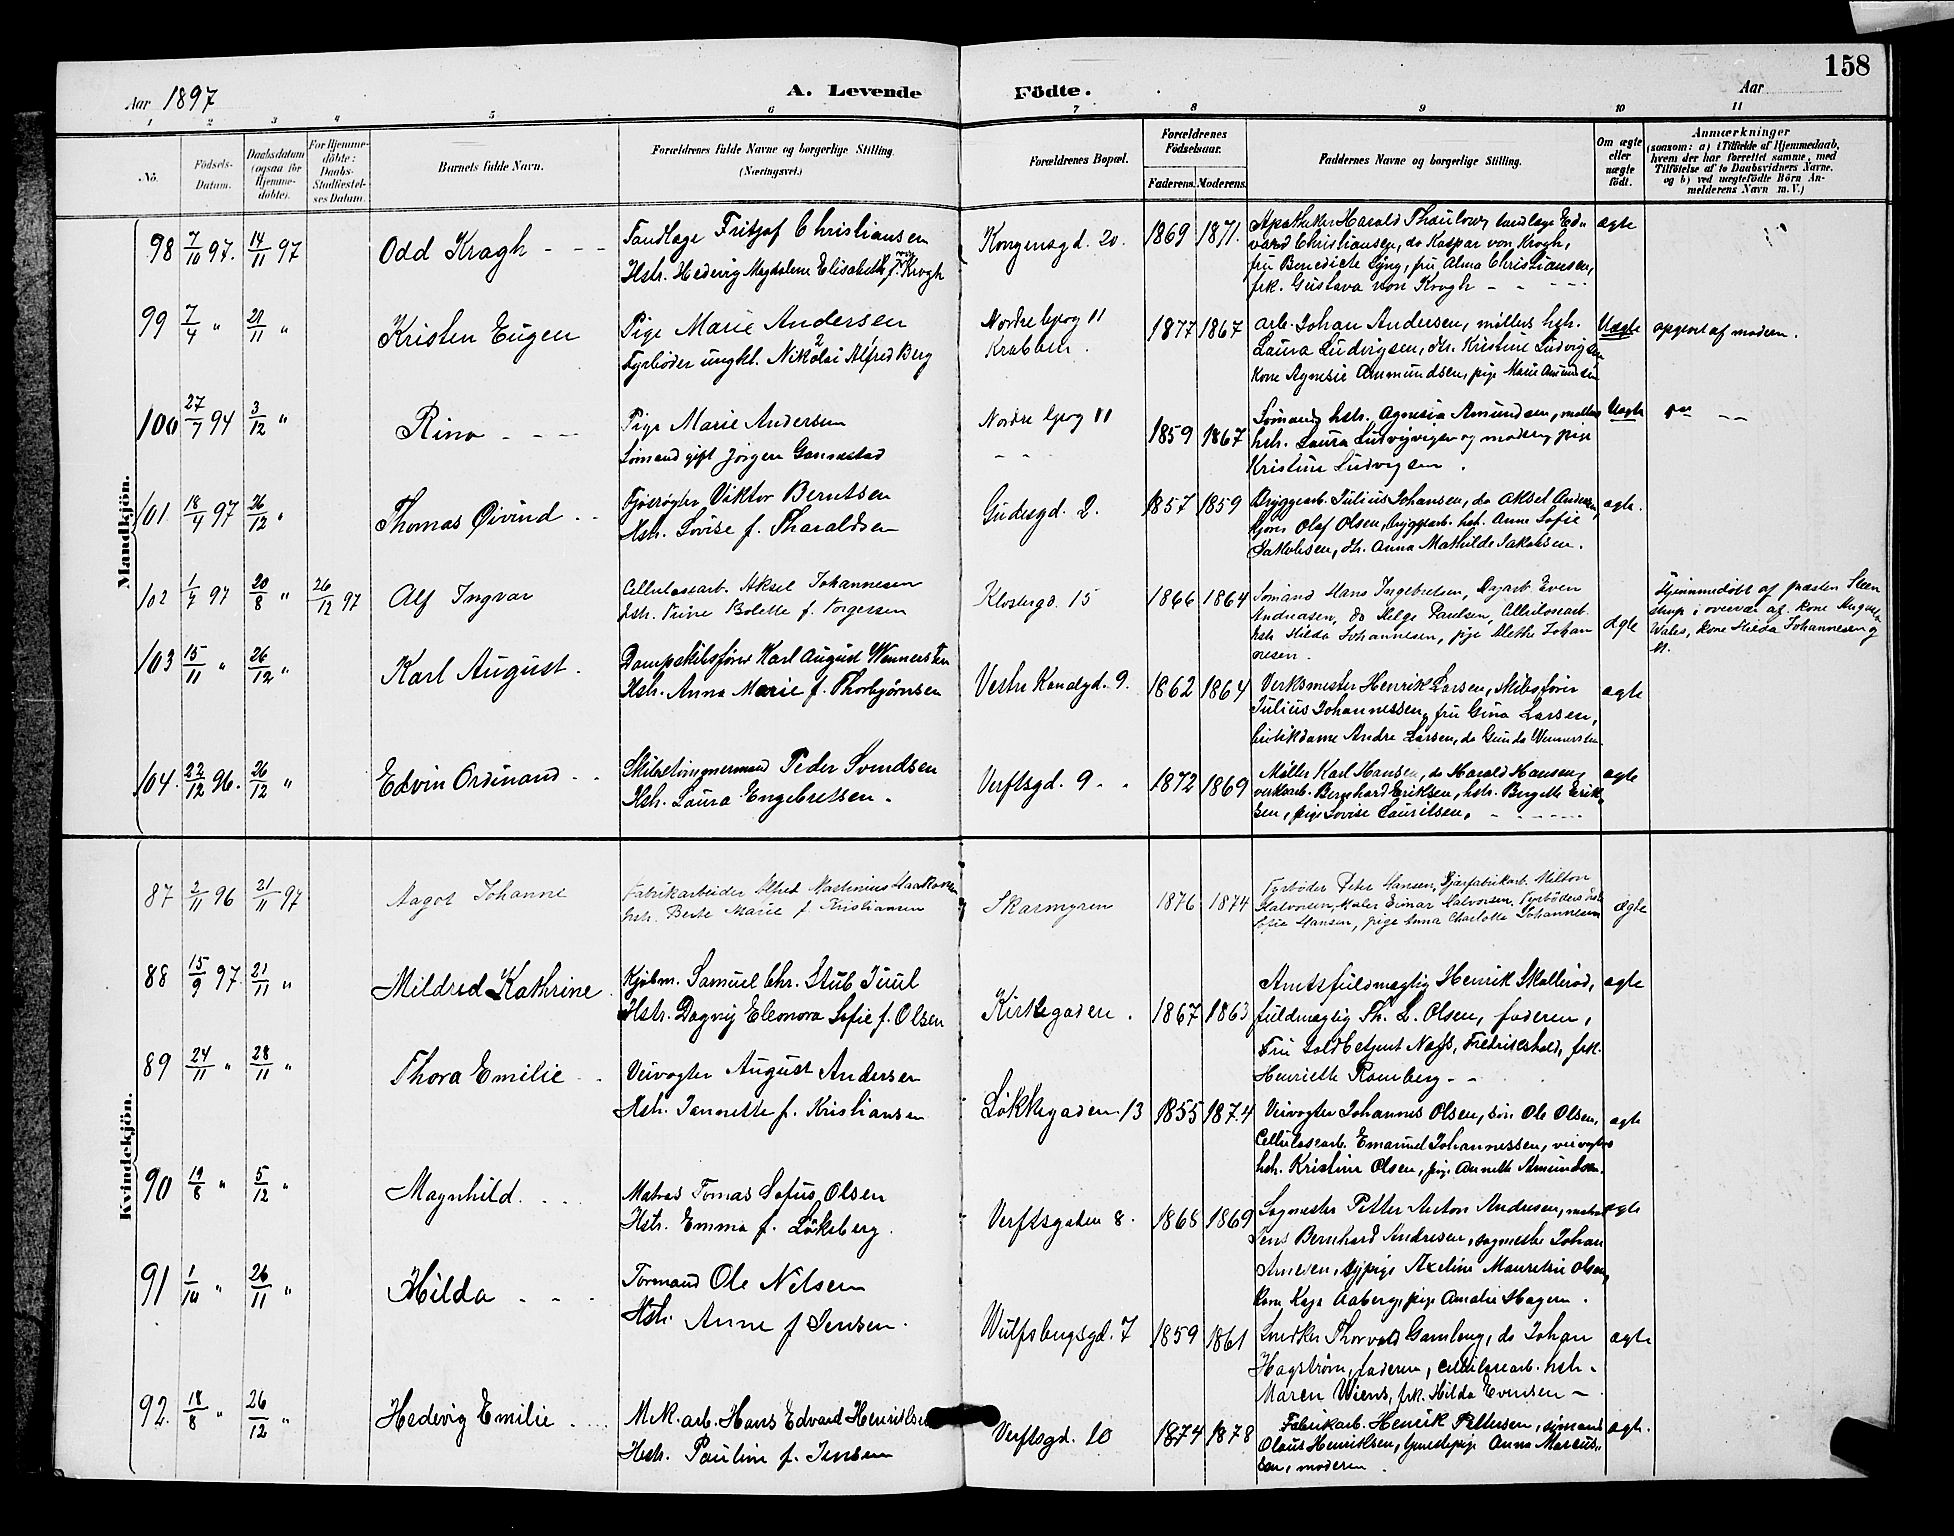 158
Aar 1897
A. Levende Födte.
Aar
1 2 3 4 5 6 7 8 9 10 11
No.
Födsels-Datum.
Daabsdatum (ogsaa for Hjemme-döbte).
For Hjemme-döbte: Daabs-Stadfæstel-ses Datum.
Barnets fulde Navn.
Forældrenes fulde Navne og borgerlige Stilling.
(Næringsvei.)
Forældrenes Bopæl.
Forældrenes Födselsaar.
Faderens. Moderens.
Faddernes Navne og borgerlige Stilling.
Om ægte eller uægte födt.
Anmærkninger
(saasom: a) i Tilfælde af Hjemmedaab, hvem der har forrettet samme, med Tilföielse af to Daabsvidners Navne, og b) ved uægtefödte Börn An-melderens Navn m. V.)
Mandkjön.
98 7/10 97. 14/11 97 Odd Kragh - - -
Tandlæge Fritjof Christiansen
Hstr. Hedevig Magdalene Elisabeth f. von Krogh
Kongensgd. 20. 1869 1871.
Apotheker Harald Thaulow, tandlæge Ed-
vard Christiansen, do Kaspar von Krogh,
fru Benedicte Lyng, fru Alma Christiansen,
frk. Gustava von Krogh - - - -
ægte
99 7/4 " 21/11 " Kristen Eugen
Pige Marie Andersen
Fyrböder ungkl. Nikolai Alfred Berg
Nordre bjerg 11
Krabben.
1877 1867
Arb. Johan Andersen, möllers hstr.
Laura Ludvigsen, do. Kristine Ludvigsen
Kone Agnesie Ammundsen, pige Marie Amundsen
Uægte opgivet af modern.
100 27/7 94 3/12 " Rino - - -
Pige Marie Andersen
Sömand gift Jörgen Gannestad
Nordre bjerg 11
1859 1867
Sömands hstr. Agnesia Amundsen, möllers
hstr. Laura Ludvigsen og moderen, pige
Kristine Ludvigsen.
Uægte
101 18/4 97 26/12 " Thomas Øivind - -
Viktor Berntsen
Hstr. Lovise f. Tharaldsen
Gudesgd. 2. 1857 1859
Bryggearb. Julius Johansen, do Aksel Andersen,
Olaf Olsen, bryggearb. hst. Anne Sofie
Jakobsen, do. Anna Mathilde Jakobsen.
ægte.
102 1/7 97 20/8 " 26/12 97 Alf Ingvar
Cellulosearb. Aksel Johannesen
hstr. Trine Bolette f. Torgersen
Klostergd. 15 1866 1864
Sömand Hans Ingebretsen, Dagarb. Even
Andreasen, do Helge Paulsen, Cellulosearb.
hstr Hilda Johannesen, pige Methe Johan
nesen.
ægte
Hjemmedöbt af præsten Steen
strup i overvær af kone
Wales, kone Hilda Johannesen og
103 15/11 " 26/12 " Karl August.
Dampskibsförer Karl August Wennersten
Hstr. Anna Marie f. Thorbjørnsen
Vestre Kanalgd. 9. 1862 1864
Verksmester Henrik Larsen, skibsförer
Julius Johannessen, fru Gina Larsen,
butikdame Andre Larsen, do Gunda Wennersten
ægte
104. 22/12 96. 26/12 " Edvin Ordinand - -
Skibstömmermand Peder Svendsen
Hstr. Laura Engebretsen.
Verftsgd. 9 - - 1872 1869
Möller Karl Hansen, do Harald Hansen,
verksarb. Bernhard Eriksen, hstr. Birgette Erik-
sen, pige Lovise Lauritsen.
ægte
Kvindekjön.
87 2/11 96 21/11 97 Aagot Johanne
Fabrikarbeider Alfred Martinius Haakonsen
hstr. Berte Marie f. Kristiansen
Skarmyren 1876 1874
Fyrböder Peter Hansen, fabrikarb. Milton
Halvorsen, Maler Einar Halvorsen, Fyrböders hstr
Sofie Hansen, pige Anna Charlotte Johannesen
ægte
88 15/9 97. 21/11 " Mildred Kathrine
Kjöbm. Samuel Chr. Stub Juul
Hstr. Dagny Eleonora Sofie f. Olsen
Kirkegaden. 1867 1863
Amtsfuldmægtig Henrik Skolleröd,
fuldmægtig Th. L. Olsen, faderen,
Fru Toldbetjent Næss, Fredrikshald, frk.
Henriette Romberg - -
ægte
89 24/11 " 28/11 " Thora Emilie -
Veivogter August Andersen
Hstr. Jannette f. Kristiansen
Løkkegaden. 13 1855 1874
Veivogter Johannes Olsen, sön Ole Olsen,
Cellulosearb. Emanuel Johannessen, veivogters
hstr. Kristine Olsen, pige Annette Amundsen.
ægte
90 19/8 " 5/12 " Magnhild. - -
Matros Tomas Sofus Olsen
Hstr. Emma f. Løkeberg.
Verftsgaden 8. 1868 1869
Sagmester Petter Anton Andersen, matros
Jens Bernhard Andresen, sagmester Johan
sypige Axeline Mauretse Olsen,
kone Kaja Aaberg, pige Amalie Hagen.
ægte
91 1/10 " 26/11 " Hilda - - -
Tormand Ole Nilsen
Hstr. Anne f Jensen.
Wulfsbergsgd. 7 1859 1861
Snedker Thorvald Gamberg, do Johan
Hagström, faderen, cellulosearb. hstr.
Maren Wiens, frk. Hilda Evensen -
ægte
92. 18/8 " 26/12 " Hedevig Emilie - -
M.K. arb. Hans Edvard Henriksen
Hstr. Pauline f. Jensen
Verftsgd. 10 1874 1878
Fabrikarb. Henrik Pettersen, sömand
Olaus Henriksen, tjenestepige Anna Marcus-
sen, moderen.
ægte.